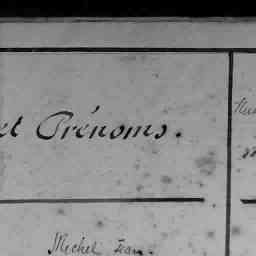 et Prénoms.
Michel Jean.